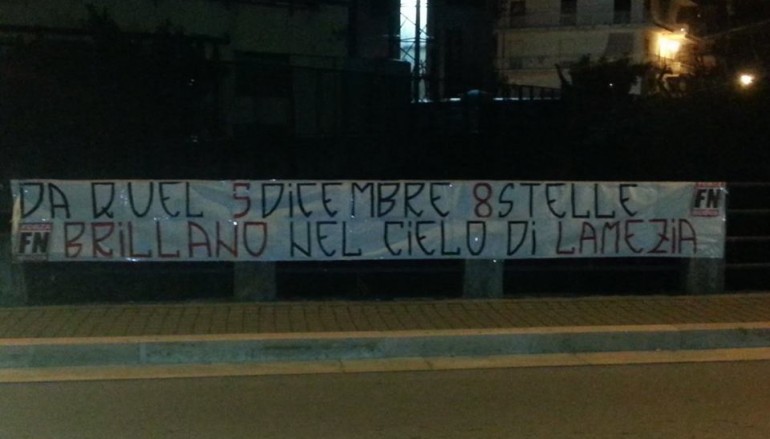 DA QUEL 5 DICEMBRE 8 STELLE
BRILLANO NEL CIELO DI LAMEZIA
FN
FN